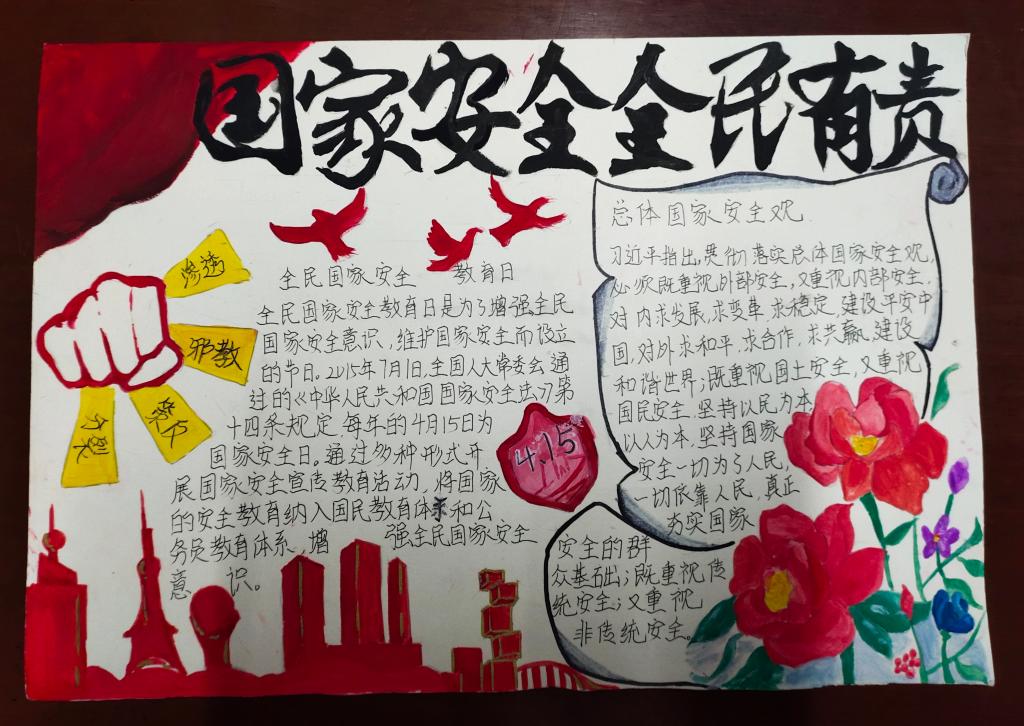 国家安全全民有责
渗透
邪教
策反
分裂
全民国家安全 教育日
全民国家安全教育日是为了增强全民
国家安全意识，维护国家安全而设立
的节日。2015年7月1日，全国人大常委会通
过的《中华人民共和国国家安全法》第
十四条规定 每年的4月15日为
国家安全日。通过多种形式开
展国家安全宣传教育活动，将国家
的安全教育纳入国民教育体系和公
务员教育体系，增 强全民国家安全
意 识。
4.15
总体国家安全观
习近平指出，贯彻落实总体国家安全观，
必须既重视外部安全，又重视内部安全，
对内求发展，求变革，求稳定，建设平安中
国，对外求和平，求合作，求共赢，建设
和谐世界；既重视国土安全，又重视
国民安全，坚持以民为本
以人为本，坚持国家
安全一切为了人民，
一切依靠人民，真正
夯实国家
安全的群
众基础；既重视传
统安全；又重视
非传统安全。